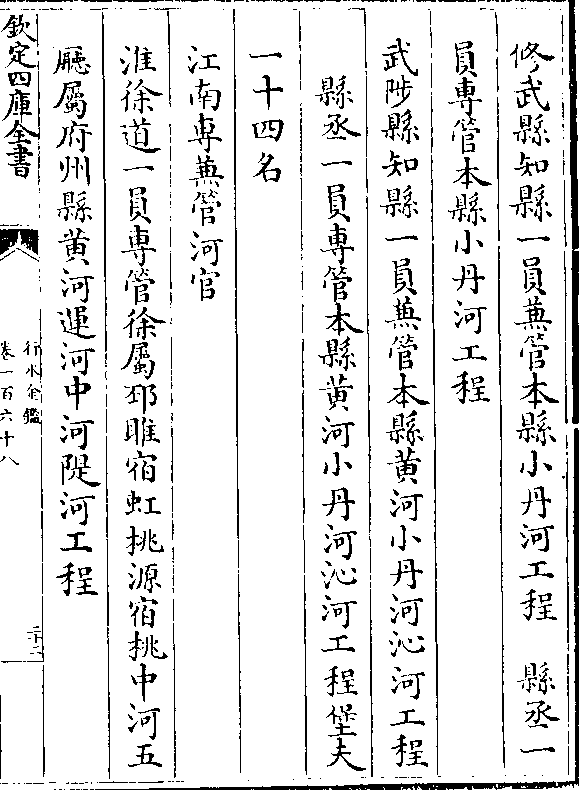 修武縣知縣一員蕪管本縣小丹河工程　縣丞一
員専管本縣小丹河工程
武陟縣知縣一員蕪管本縣黄河小丹河沁河工程
縣丞一員専管本縣黄河小丹河沁河工程堡夫
一十四名
江南専蕪管河官
淮徐道一員専管徐屬邳睢宿虹桃源宿挑中河五
廳屬府州縣黄河運河中河隄河工程
欽定四庫全書
行水金鑑
卷一百六十八